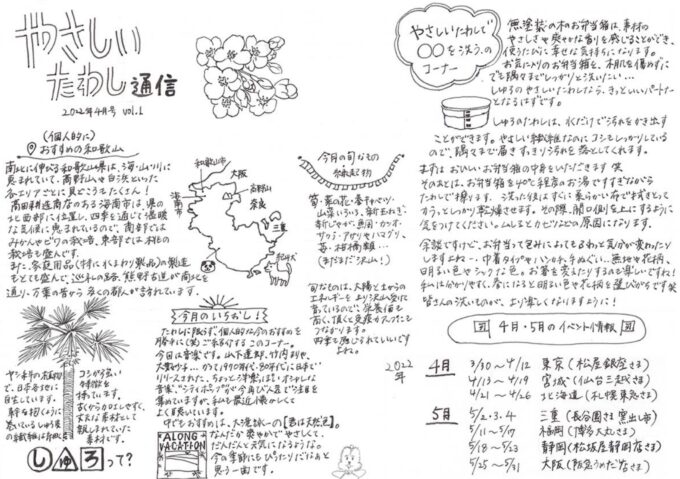 やさしい
たわし通信
2022年4月号 vol.1
(個人的に)
おすすめの和歌山
南北に伸びる和歌山県は、海・山・川に
恵まれていて、高野山や白浜といった
各エリアごとに見どころたくさん!
髙田耕造商店のある海南市は、県の
北西部に位置し、四季を通じて温暖
な気候に恵まれているので、南部では
みかんやビワの栽培、東部では桃の
栽培も盛んです。
また、家庭用品(特に水まわり製品)の製造
もとても盛んで、巡礼の路、熊野古道が南北を
通り、万葉の昔から多くの都人が訪れています。
和歌山市
大阪
高野山
奈良
三重
海南市
紀州犬
今月の旬なもの
縁起物
苺・菜の花・春キャベツ・
山菜いろいろ、新玉ねぎ、
新じゃが、魚図・カツオ・
サワラ・アサリやハマグリ、
苺・柑橘類…
(まだまだ沢山!)
旬なものは、太陽と土からの
エネルギーをより沢山受けて
育っているので、栄養価も
高く、頂くと免疫力アップにも
つながります。
四季を感じられていいです
よね。
今月のいちおし!
たわしに限らず、個人的な今のおすすめを
勝手に(笑)ご紹介するこのコーナー。
今回は音楽です。山下達郎、竹内まりや、
大瀧詠一…のような1970年代・80年代に日本で
リリースされた、ちょっと洋楽に近いオシャレな
音楽"シティポップ"が今再び人気で注目を
集めていますが、私も最近懐かしくて
よく聴いています。
中でもおすすめは、大滝詠一の【君は天然色】。
なんだか爽やかでやさしくて、
だんだんと元気になるような。
今の季節にもぴったりだなぁと
思う一曲です。
ALONG
VACATION
ヤシ科の植物
で、日本各地に
自生しています。
幹を抱くように
巻いているしゅろ皮
の繊維は
コシが強い
特徴を
持っています。
古くからロープやほうき、
丈夫な素材として
親しまれていた
素材です。
しゅろって?
やさしいたわしで
〇〇を洗う、の
コーナー
無塗装の木のお弁当箱は、素材の
やさしさや爽やかな香りを感じることができ、
使うたびに幸せな気持ちになります。
お気に入りのお弁当箱を、木肌を傷めずに
でも隅々までしっかりと洗いたい…
しゅろのやさしいたわしなら、きっといいパートナー
となるはずです。
しゅろのたわしは、水だけで汚れをかき出す
ことができます。やさしい繊維なのにコシもしっかりしている
ので、隅々まで届きすっきり汚れを落としてくれます。
まずはおいしいお弁当箱の中身をいただきます 笑
そのあとは、お弁当箱を40℃程度のお湯ですすぎながら
たわしで擦ります。洗った後はすぐに柔らかい布で拭きとって
すうっとしっかり乾燥させます。その際、開口側を上にするように
気をつけてください。ムレるとカビなどの原因になります。
余談ですけど、お弁当って包みによってもぐわっと気分が変わったり
しますよね…。巾着タイプやハンカチ、手ぬぐい、無地や花柄、
明るい色やシックな色。お箸を変えたりするのも楽しいですね!
私はわかりやすく、春になると明るい色や花柄を選びがちです 笑
皆さんの洗いものが、より楽しくなりますように!
4月・5月のイベント情報
2022年
4月 3/30〜4/12 東京(松屋銀座さま)
4/13〜4/19 宮城(仙台三越さま)
4/21〜4/26 北海道(札幌東急さま)
5月 5/2.3.4 三重(長谷園さま 窯出し市)
5/11〜5/17 福岡(博多大丸さま)
5/18〜5/23 静岡(松坂屋静岡店さま)
5/25〜5/31 大阪(阪急うめださま)